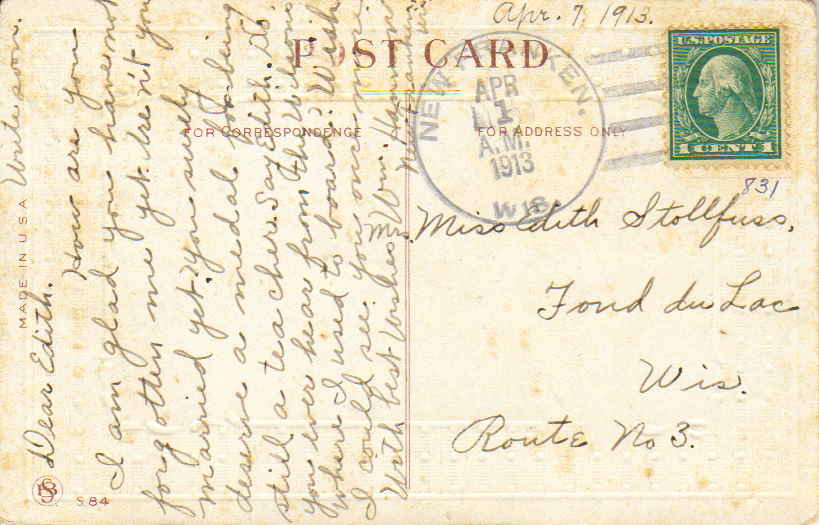 Apr. 7, 1913.
POST CARD
FOR CORRESPONDENCE
FOR ADDRESS ONLY
NEW FRANKEN.
APR
A.M.
1913
WIS.
U.S. POSTAGE
1 CENT 1
831
Miss Edith Stollfuss,
Fond du Lac
Wis.
Route No 3.
Write soon.
Dear Edith.
How are you
I am glad you have not
forgotten me yet. Aren't you
married yet? You surely
deserve a medal for being
still a teacher. Say Edith. Do
you ever hear from the Wilsons
where I used to board? Wish
I could see you once more.
With best wishes
Mrs. Wm. Hannon
New Franken
Wis
MADE IN U S A
S. 84